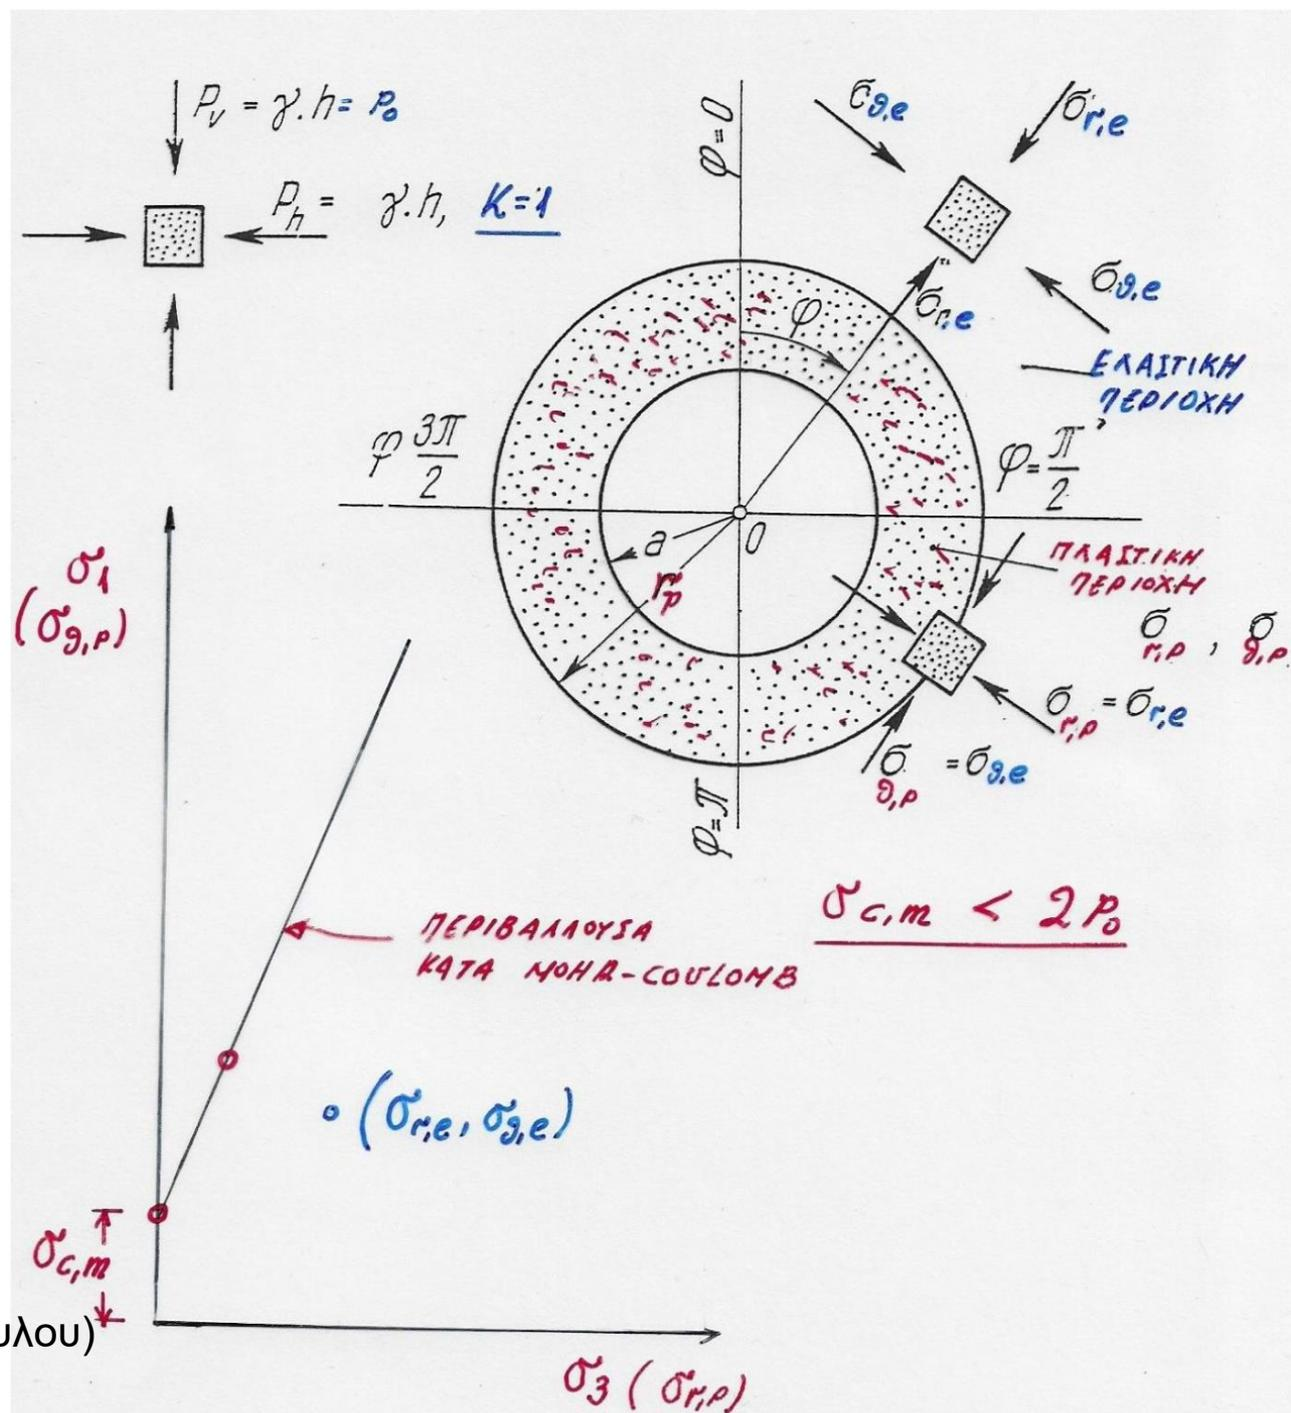 P_v = γ.h = P₀
P_h = γ.h, K=1
φ=0
σ_θ,e
σ_r,e
σ_θ,e
σ_r,e
φ
ΕΛΑΣΤΙΚΗ
ΠΕΡΙΟΧΗ
φ 3π/2
φ= π/2
a
0
r_p
ΠΛΑΣΤΙΚΗ
ΠΕΡΙΟΧΗ
σ_r,p , σ_θ,p
σ_r,p = σ_r,e
σ_θ,p = σ_θ,e
φ=π
σ₁
(σ_θ,p)
σ_c,m < 2P₀
ΠΕΡΙΒΑΛΛΟΥΣΑ
ΚΑΤΑ MOHR-COULOMB
(σ_r,e, σ_θ,e)
σ_c,m
υλου)
σ₃ (σ_r,p)